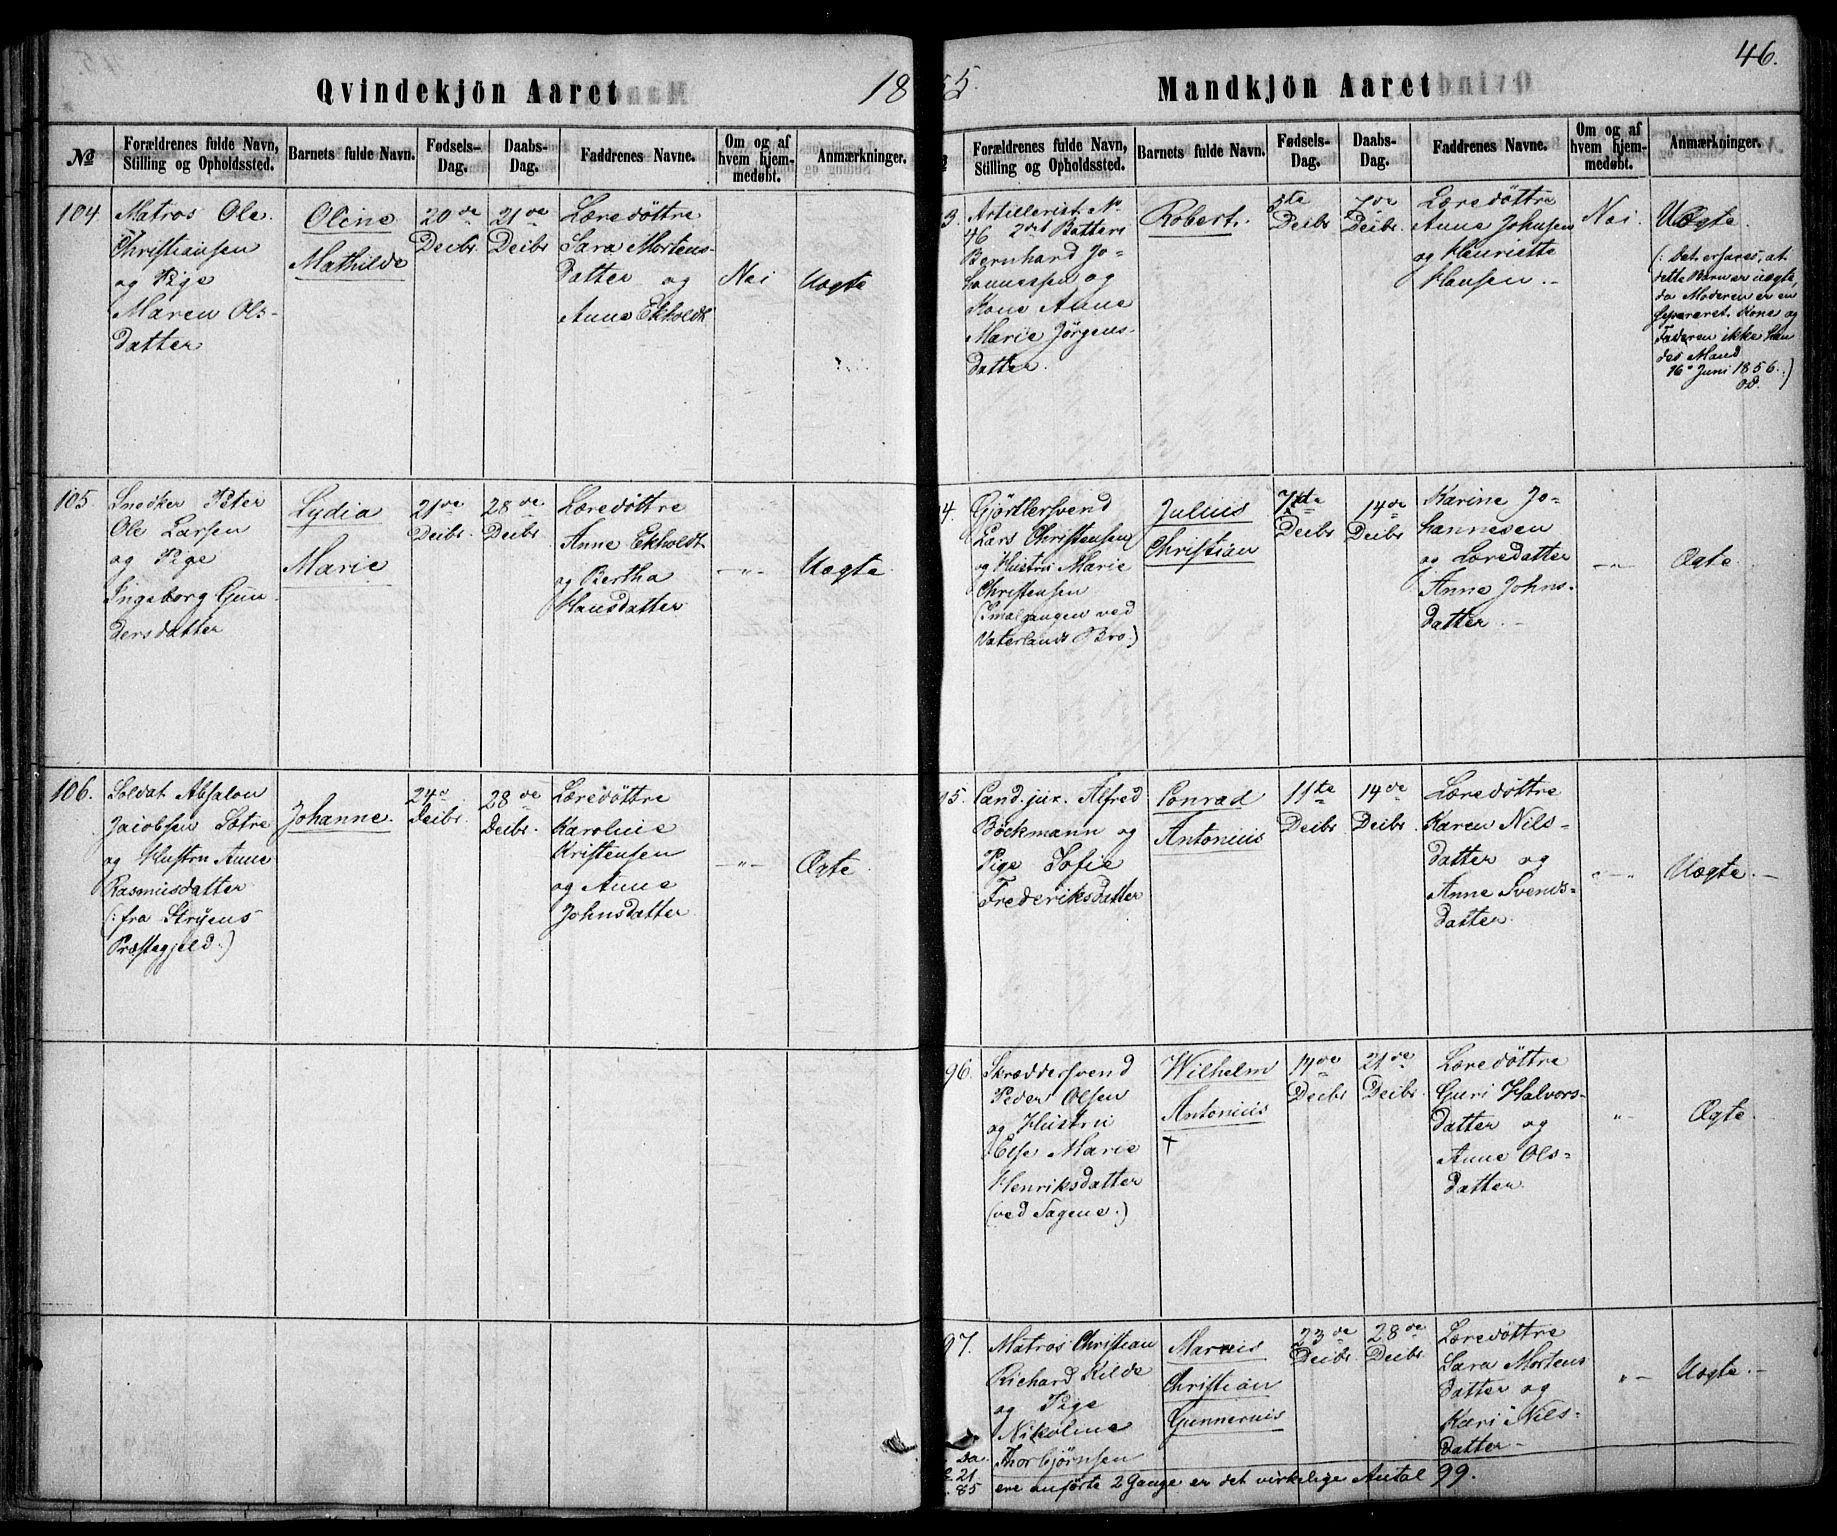 Qvindekjön Aaret 18
No
Forældrenes fulde Navn, Stilling og Opholdssted.
Barnets fulde Navn.
Fødsels-Dag.
Daabs-Dag.
Faddrenes Navne.
Om og af hvem hjem-medøbt.
Anmærkninger.
104.
Matros Ole
Christiansen
og Pige
Maren Ols-
datter
Olene
Mathilde
20de
Decbr
21de
Decbr
Læredøttre
Sara Mortens-
datter og
Anne Ekholdt
Nei
Uægte
105.
Snedker Peter
Ole Larsen
og Pige
Ingeborg Gun
dersdatter
Lydia
Marie
21de
Decbr.
28de
Decbr
Læredøttre
Anne Ekholdt
og Bertha
Hansdatter
-"-
Uægte
106.
Soldat Absalon
Jacobsen Sætre
og Hustru Anne
Rasmusdatter
(: fra Stryens
Præstegjeld.)
Johanne.
24de
Decbr.
28de
Decbr.
Læredøttre
Karoline
Kristensen
og Anne
Johnsdatter
-"-
Ægte
55.
Mandkjön Aaret
46.
Forældrenes fulde Navn, Stilling og Opholdssted.
Barnets fulde Navn.
Fødsels-Dag.
Daabs-Dag.
Faddrenes Navne.
Om og af hvem hjem-medøbt.
Anmærkninger.
3.
Artillerist No
46 2det Batteri
Bernhard Jo-
hannessen og
Kone Anne
Marie Jørgens-
datter.
Robert.
Decbr
7de
Decbr.
Læredøttre
Anne Johnsen
og Henriette
Hansen.-
Nei.
Uægte
(: Det erfares, at
dette Barn er uægte,
da Moderen er en
separeret Kone og
Faderen ikke hen
des Mand
16. Juni 1856.)
4.
Gjørtlersvend
Lars Christensen
og Hustru Marie
Christensen
(Smalgangen ved
Vaterlands Bro.)
Julius
Christian
Decbr
14de
Decbr
Karine Jo-
hannesen
og Læredatter
Anne Johns-
datter.-
-"-
Ægte
95.
Cand. jur. Alfred
Böckmann og
Pige Sofie
Frederiksdatter
Conrad
Antonius
11te
Decbr
14de
Decbr
Læredøttre
Karen Nils-
datter og
Anne Svends-
datter.
-"-
Uægte.-
96.
Skræddersvend
Peder Olsen
og Hustru
Else Marie
Henriksdatter
(ved Sagene.)
Wilhelm
Antonius
+
14de
Decbr
21de
Decbr.
Læredøttre
Guri Halvors-
datter og
Anne Ols-
datter.
"
Ægte
97.
Matros Christian
Richard Kilde
og Pige
Nikoline
Thorbjørnsen
Marius
Christian
Gunnerius
23de
Decbr.
28de
Decbr.
Læredøttre
Sara Mortens
datter og
Kari Nils-
datter-
"-
Uægte.-
Da
21
85
ere anførte 2 Gange er det virkelige Antal 99.